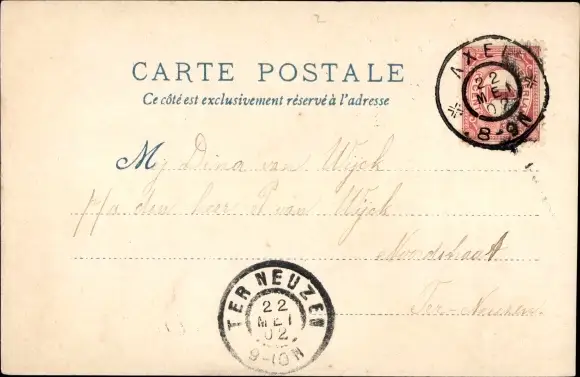 CARTE POSTALE
Ce côté est exclusivement réservé à l'adresse
AXEL
22
MEI
02
8-9N
Mej Dina van Wyck
p/a den heer P van Wyck
Noordstraat
Ter-Neuzen.
TER NEUZEN
22
MEI
02
9-10N